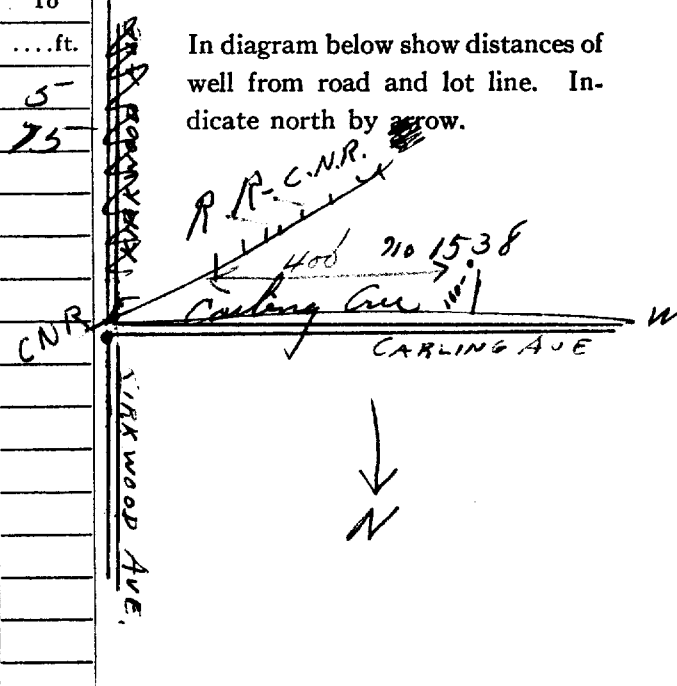 To
....ft.
5
75
In diagram below show distances of
well from road and lot line. In-
dicate north by arrow.
R.R. C.N.R.
400
no 1538
100'
Carling Ave
CNR
W
CARLING AVE
KIRKWOOD AVE.
N